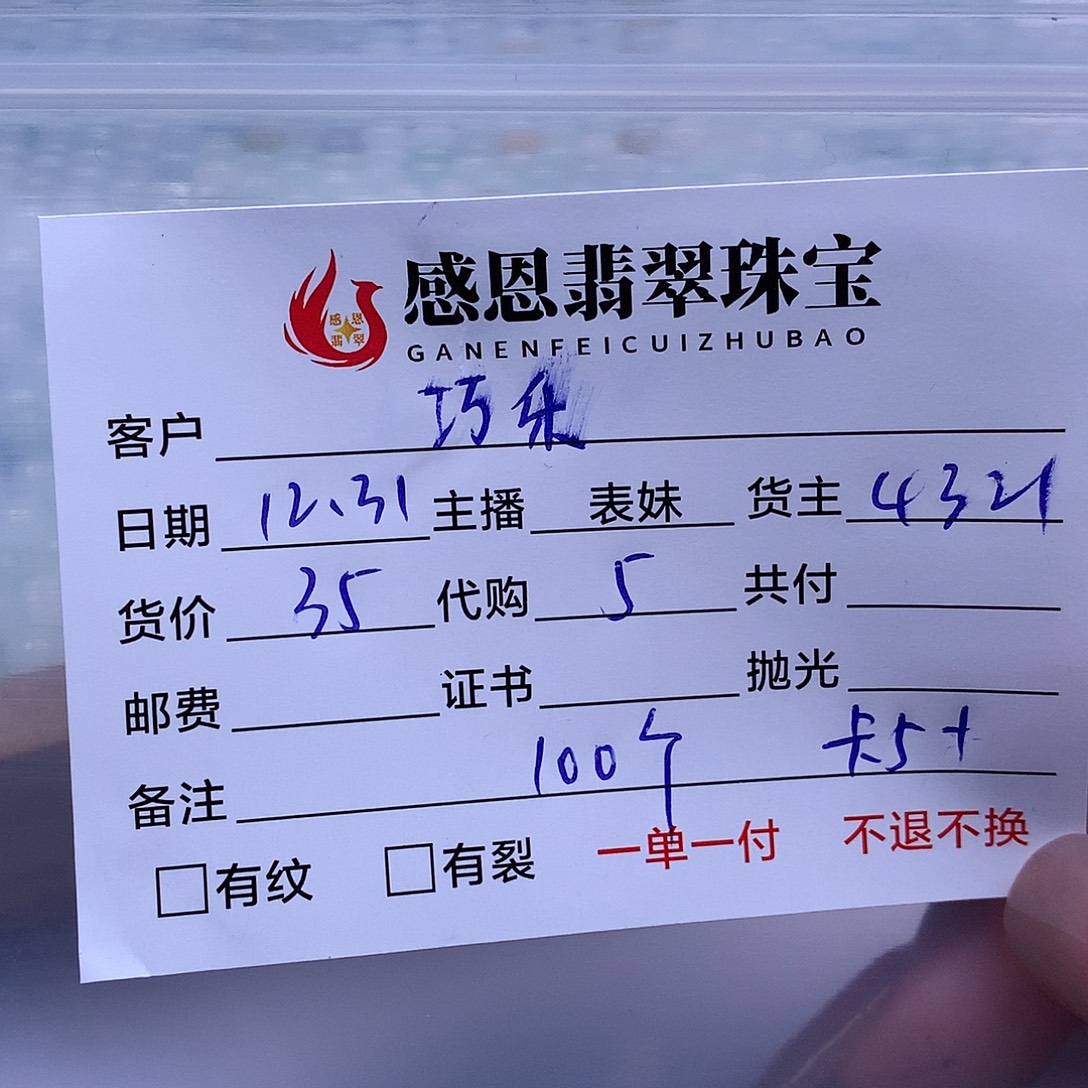 感恩翡翠珠宝
GANENFEICUIZHUBAO
客户 巧
日期 12.31 主播 表妹 货主 4321
货价 35 代购 5 共付
邮费 证书 抛光
备注 100个 卡5+
有纹 有裂 一单一付 不退不换